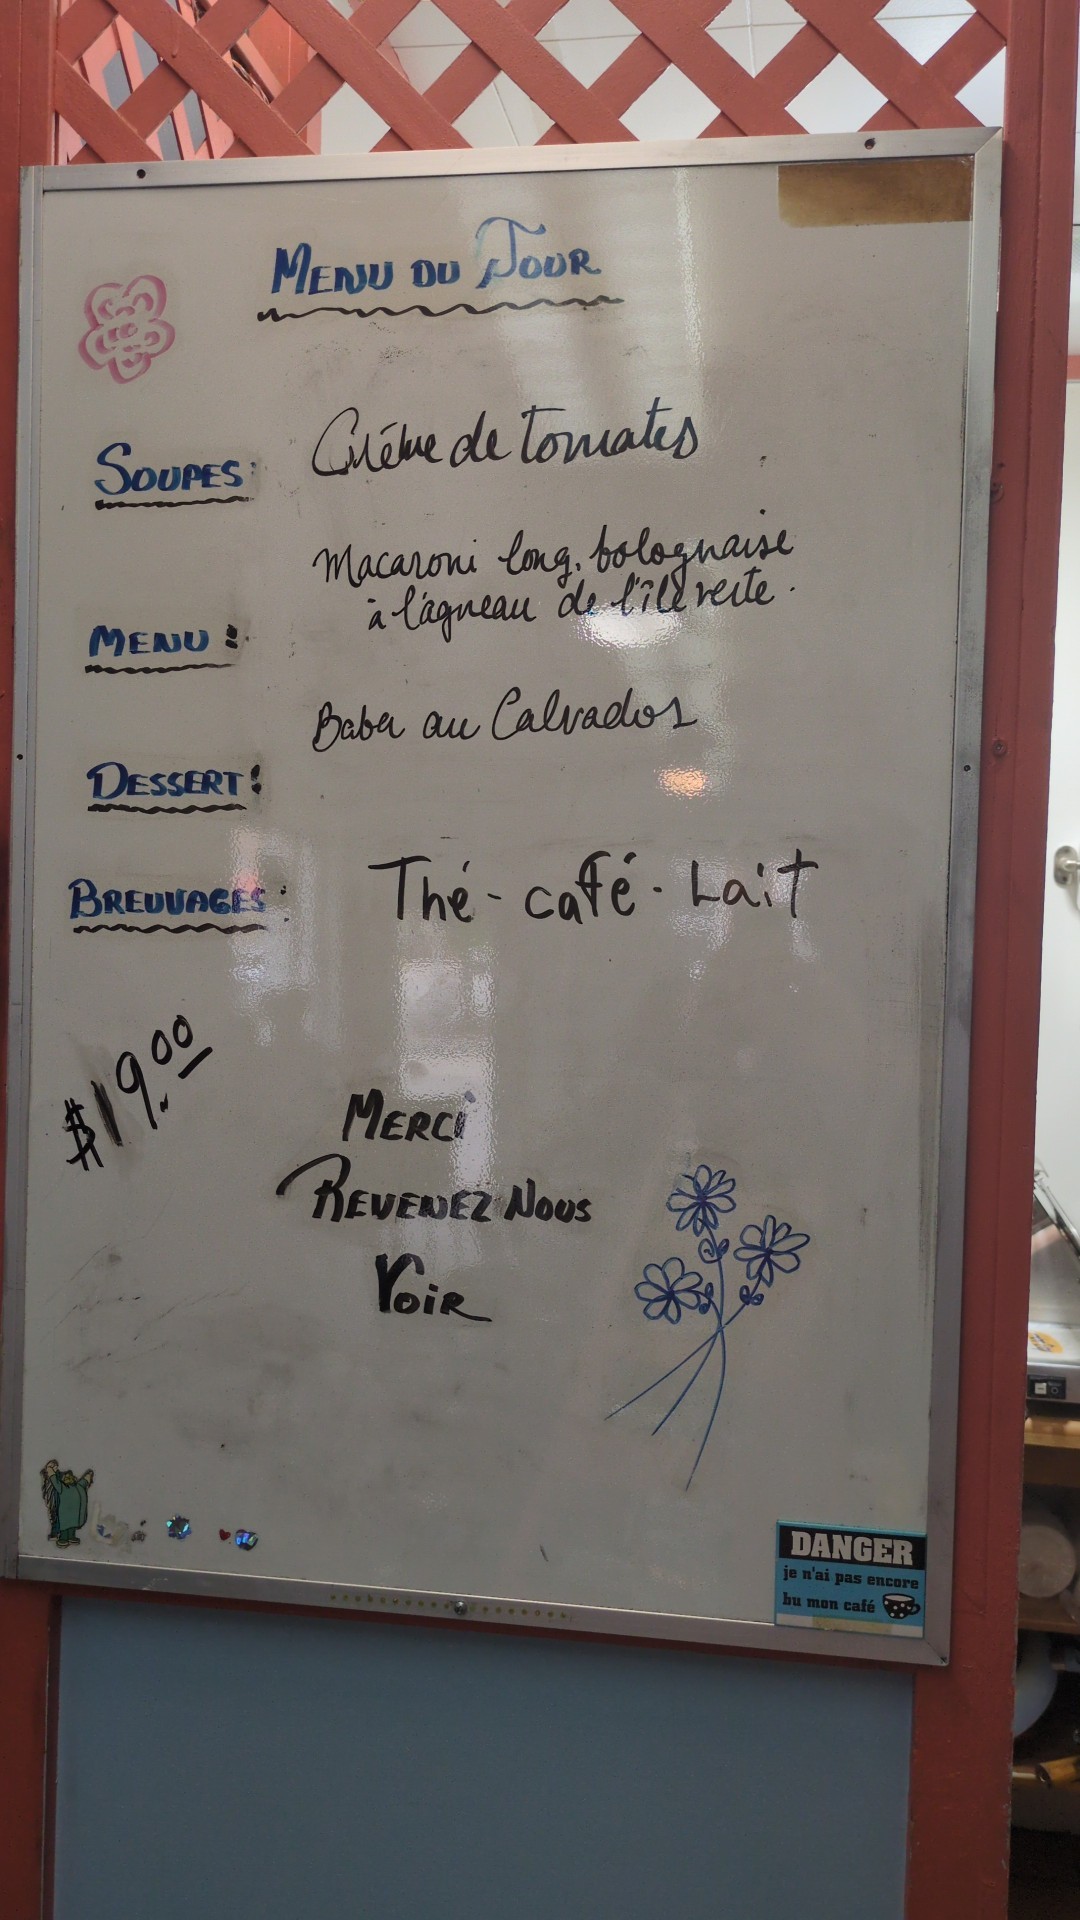 MENU DU JOUR
SOUPES: Crème de tomates
Macaroni long. bolognaise
à l'agneau de l'île verte.
MENU:
Baba au Calvados
DESSERT:
BREUVAGES: Thé - café - Lait
$19.00
MERCI
REVENEZ NOUS
VOIR
DANGER
je n'ai pas encore
bu mon café